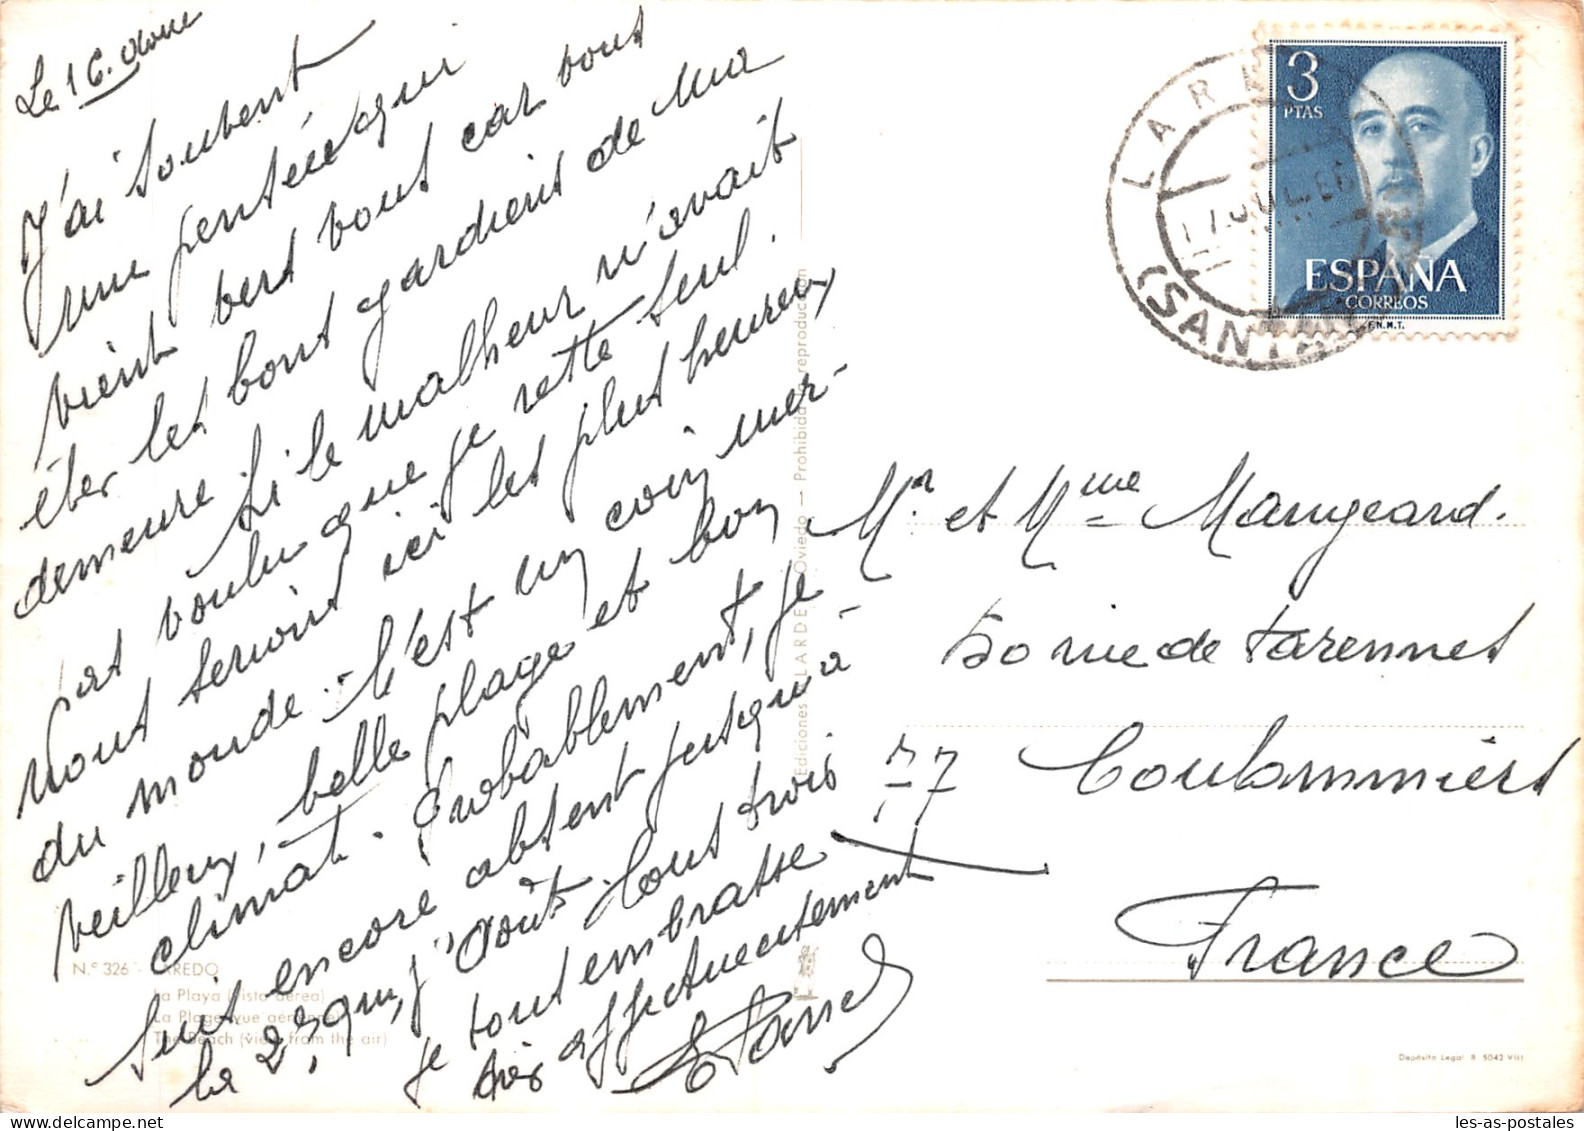 Le 16. Aout
J'ai souvent
une pensée qui
vient vers vous car vous
êtes les bons gardiens de ma
demeure. Si le malheur n'avait
pas voulu que je reste seul.
nous serions ici les plus heureux
du monde. C'est un coin mer-
veilleux, belle plage et bon
climat. Probablement, je
suis encore absent jusqu'à
le 25, j' Août. Vous trois
je vous embrasse
très affectueusement
N.º 326 - LAREDO
La Playa (vista aérea)
La Plage (vue aérienne)
The Beach (view from the air)
Ediciones ALARDE - Oviedo — Prohibida la reproducción
3
PTAS
ESPAÑA
CORREOS
F.N.M.T.
LAREDO
(SANTANDER)
Mr. et Mme Mangeard.
50 rue de Varennes
77 Coulommiers
France
Depósito Legal B 5042 VIII
les-as-postales.com